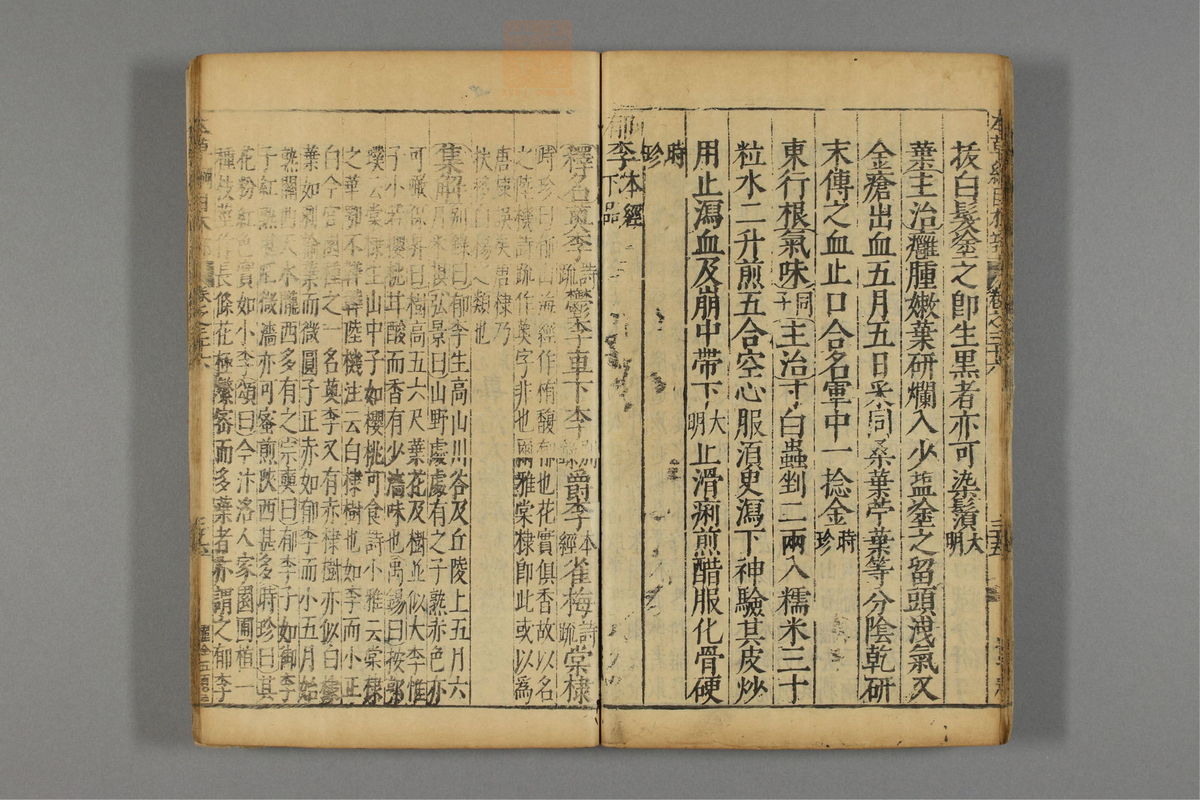 拔白髮塗之即生黑者亦可染鬚髮大明
葉主治癰腫嫩葉研爛入少盐塗之留頭洩氣又
金瘡出血五月五日采同桑葉苧葉等分陰乾研
末傅之血止口合名軍中一捻金時珍
東行根氣味同子主治寸白蟲剉二兩入糯米三十
粒水二升煎五合空心服須臾瀉下神驗其皮炒
用止瀉血及崩中帶下大明止滑痢煎醋服化骨硬
時珍
郁李本經下品
釋名薁李詩疏鬱李車下李別錄爵李本經雀梅詩疏棠棣
時珍曰郁山海經作栯馥郁也花實俱香故以名
之陸機詩疏作薁字非也爾雅棠棣即此或以為
唐棣誤矣唐棣乃
扶栘白楊之類也
集解別錄曰郁李生高山川谷及丘陵上五月六
月采根弘景曰山野處處有之子熟赤色亦
可噉保昇曰樹高五六尺葉花及樹並似大李惟
子小若櫻桃甘酸而香有少濇味也禹錫曰按郭
璞云棠棣生山中子如櫻桃可食詩小雅云棠棣
之華鄂不韡韡陸機注云白棣樹也如李而小正
白今官園種之一名薁李又有赤棣樹亦似白棣
葉如刺榆葉而微圓子正赤如郁李而小五月始
熟關西天水隴西多有之宗奭曰郁李子如御李
子紅熟堪啖微濇亦可蜜煎陝西甚多時珍曰其
花粉紅色實如小李頌曰今汴洛人家園圃植一
種枝莖作長條花極繁密而多葉者亦謂之郁李